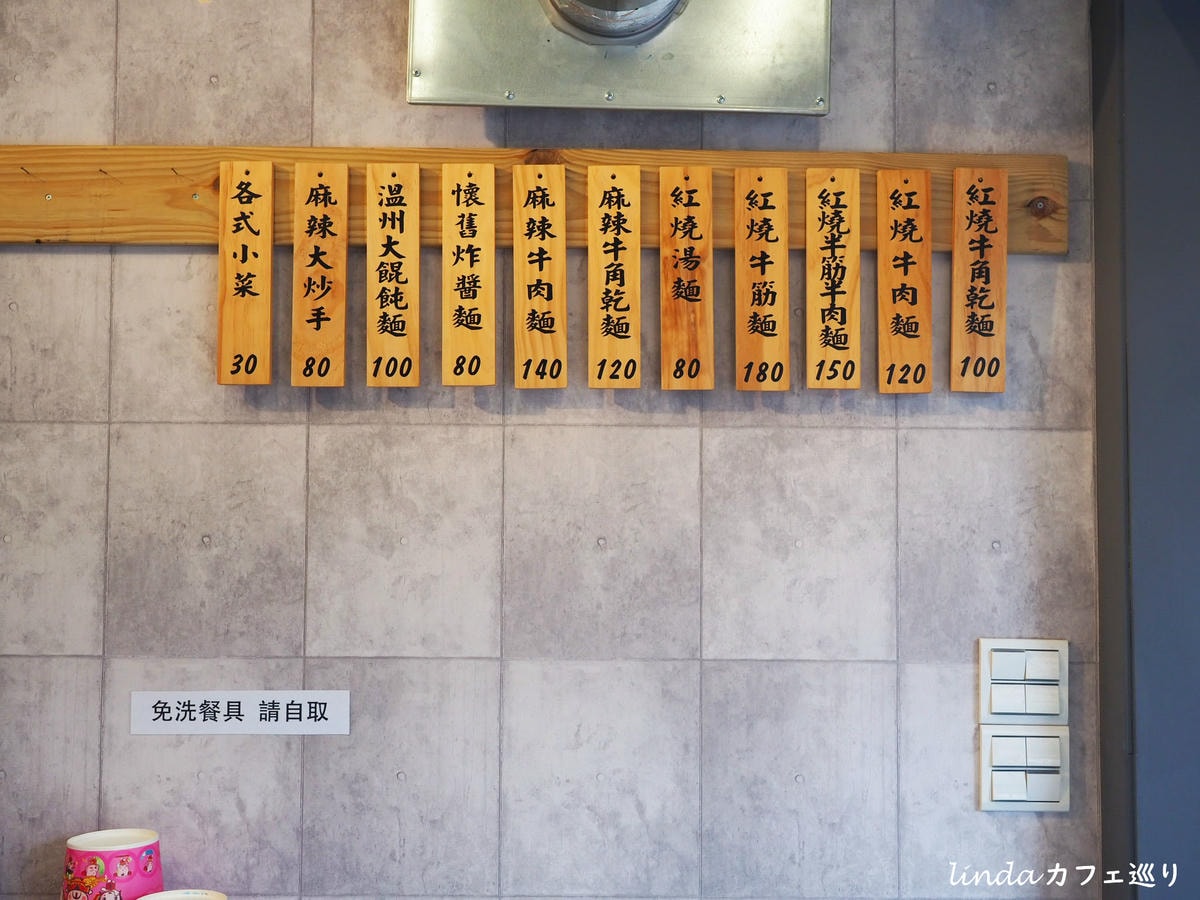 紅燒牛角乾麵
100
紅燒牛肉麵
120
紅燒半筋半肉麵
150
紅燒牛筋麵
180
紅燒湯麵
80
麻辣牛角乾麵
120
麻辣牛肉麵
140
懷舊炸醬麵
80
溫州大餛飩麵
100
麻辣大炒手
80
各式小菜
30
免洗餐具 請自取
lindaカフェ巡り